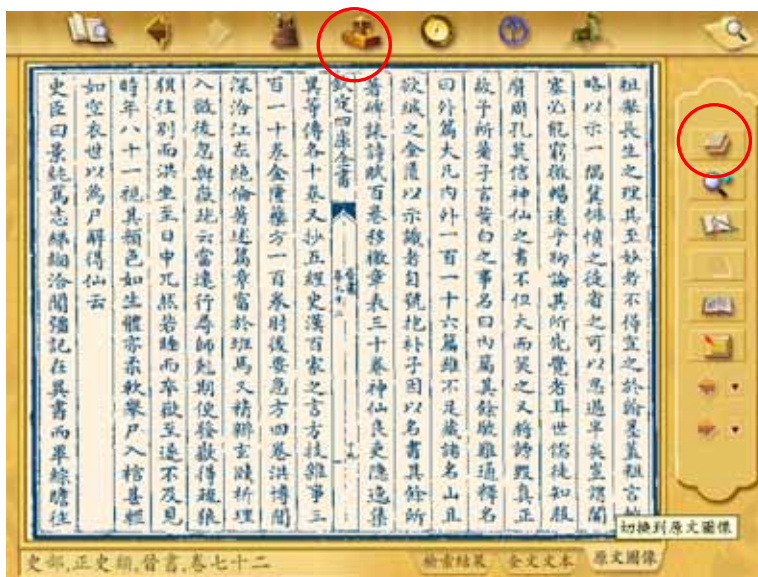 粗舉長生之理其至妙者不得宣之於翰墨蓋粗言
略以示一隅冀悱憤之徒省之可以思過半矣豈謂闇
塞必能窮微暢遠乎聊論其所先覺者耳世儒徒知服
膺周孔莫信神仙之書不但大而笑之又將謗毀真正
故予所著子言黃白之事名曰內篇其餘駁難通釋名
曰外篇大凡內外一百一十六篇雖不足藏諸名山且
欲緘之金匱以示識者自號抱朴子因以名書其餘所
著碑誄詩賦百卷移檄章表三十卷神仙良吏隱逸集
欽定四庫全書
晉書
卷七十二
異等傳各十卷又抄五經史漢百家之言方技雜事三
百一十卷金匱藥方一百卷肘後要急方四卷洪博聞
深洽江左絕倫著述篇章富於班馬又精辯玄賾析理
入微後忽與嶽疏云當遠行尋師剋期便發嶽得疏狼
狽往別而洪坐至日中兀然若睡而卒嶽至遂不及見
時年八十一視其顏色如生體亦柔軟舉尸入棺甚輕
如空衣世以為尸解得仙云
史臣曰景純篤志綈緗洽聞彊記在異書而畢綜瞻往
切換到原文圖像
史部,正史類,晉書,卷七十二
檢索結果 全文文本 原文圖像